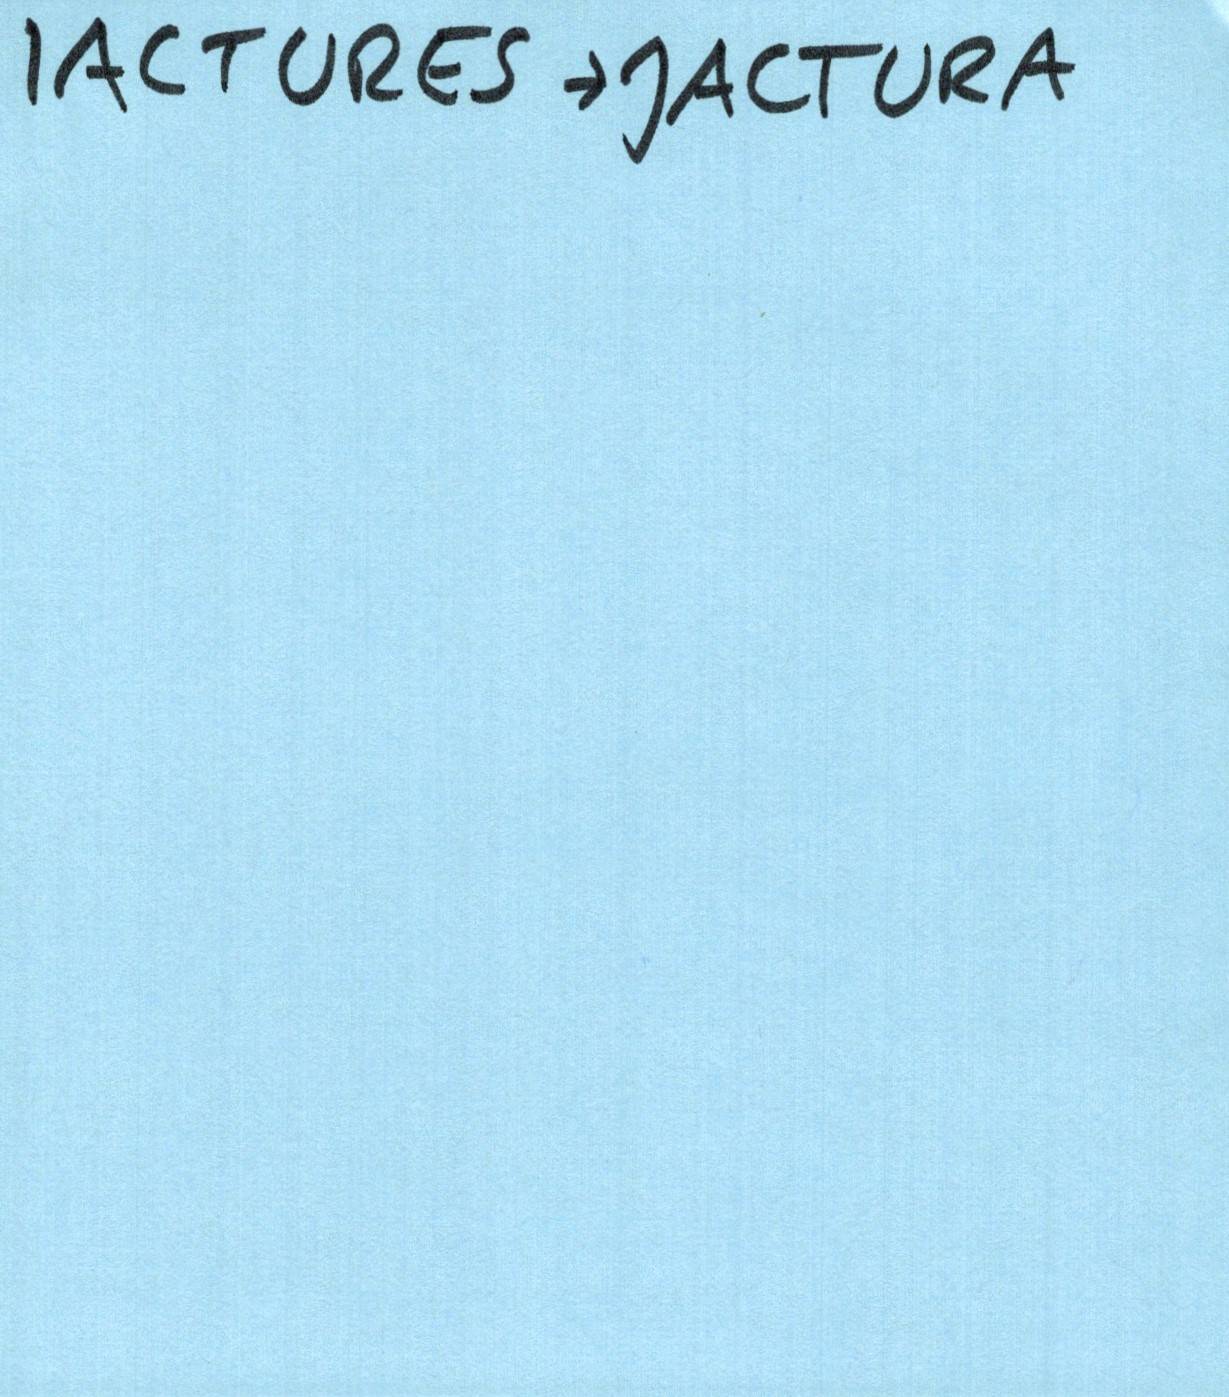 IACTURES → JACTURA